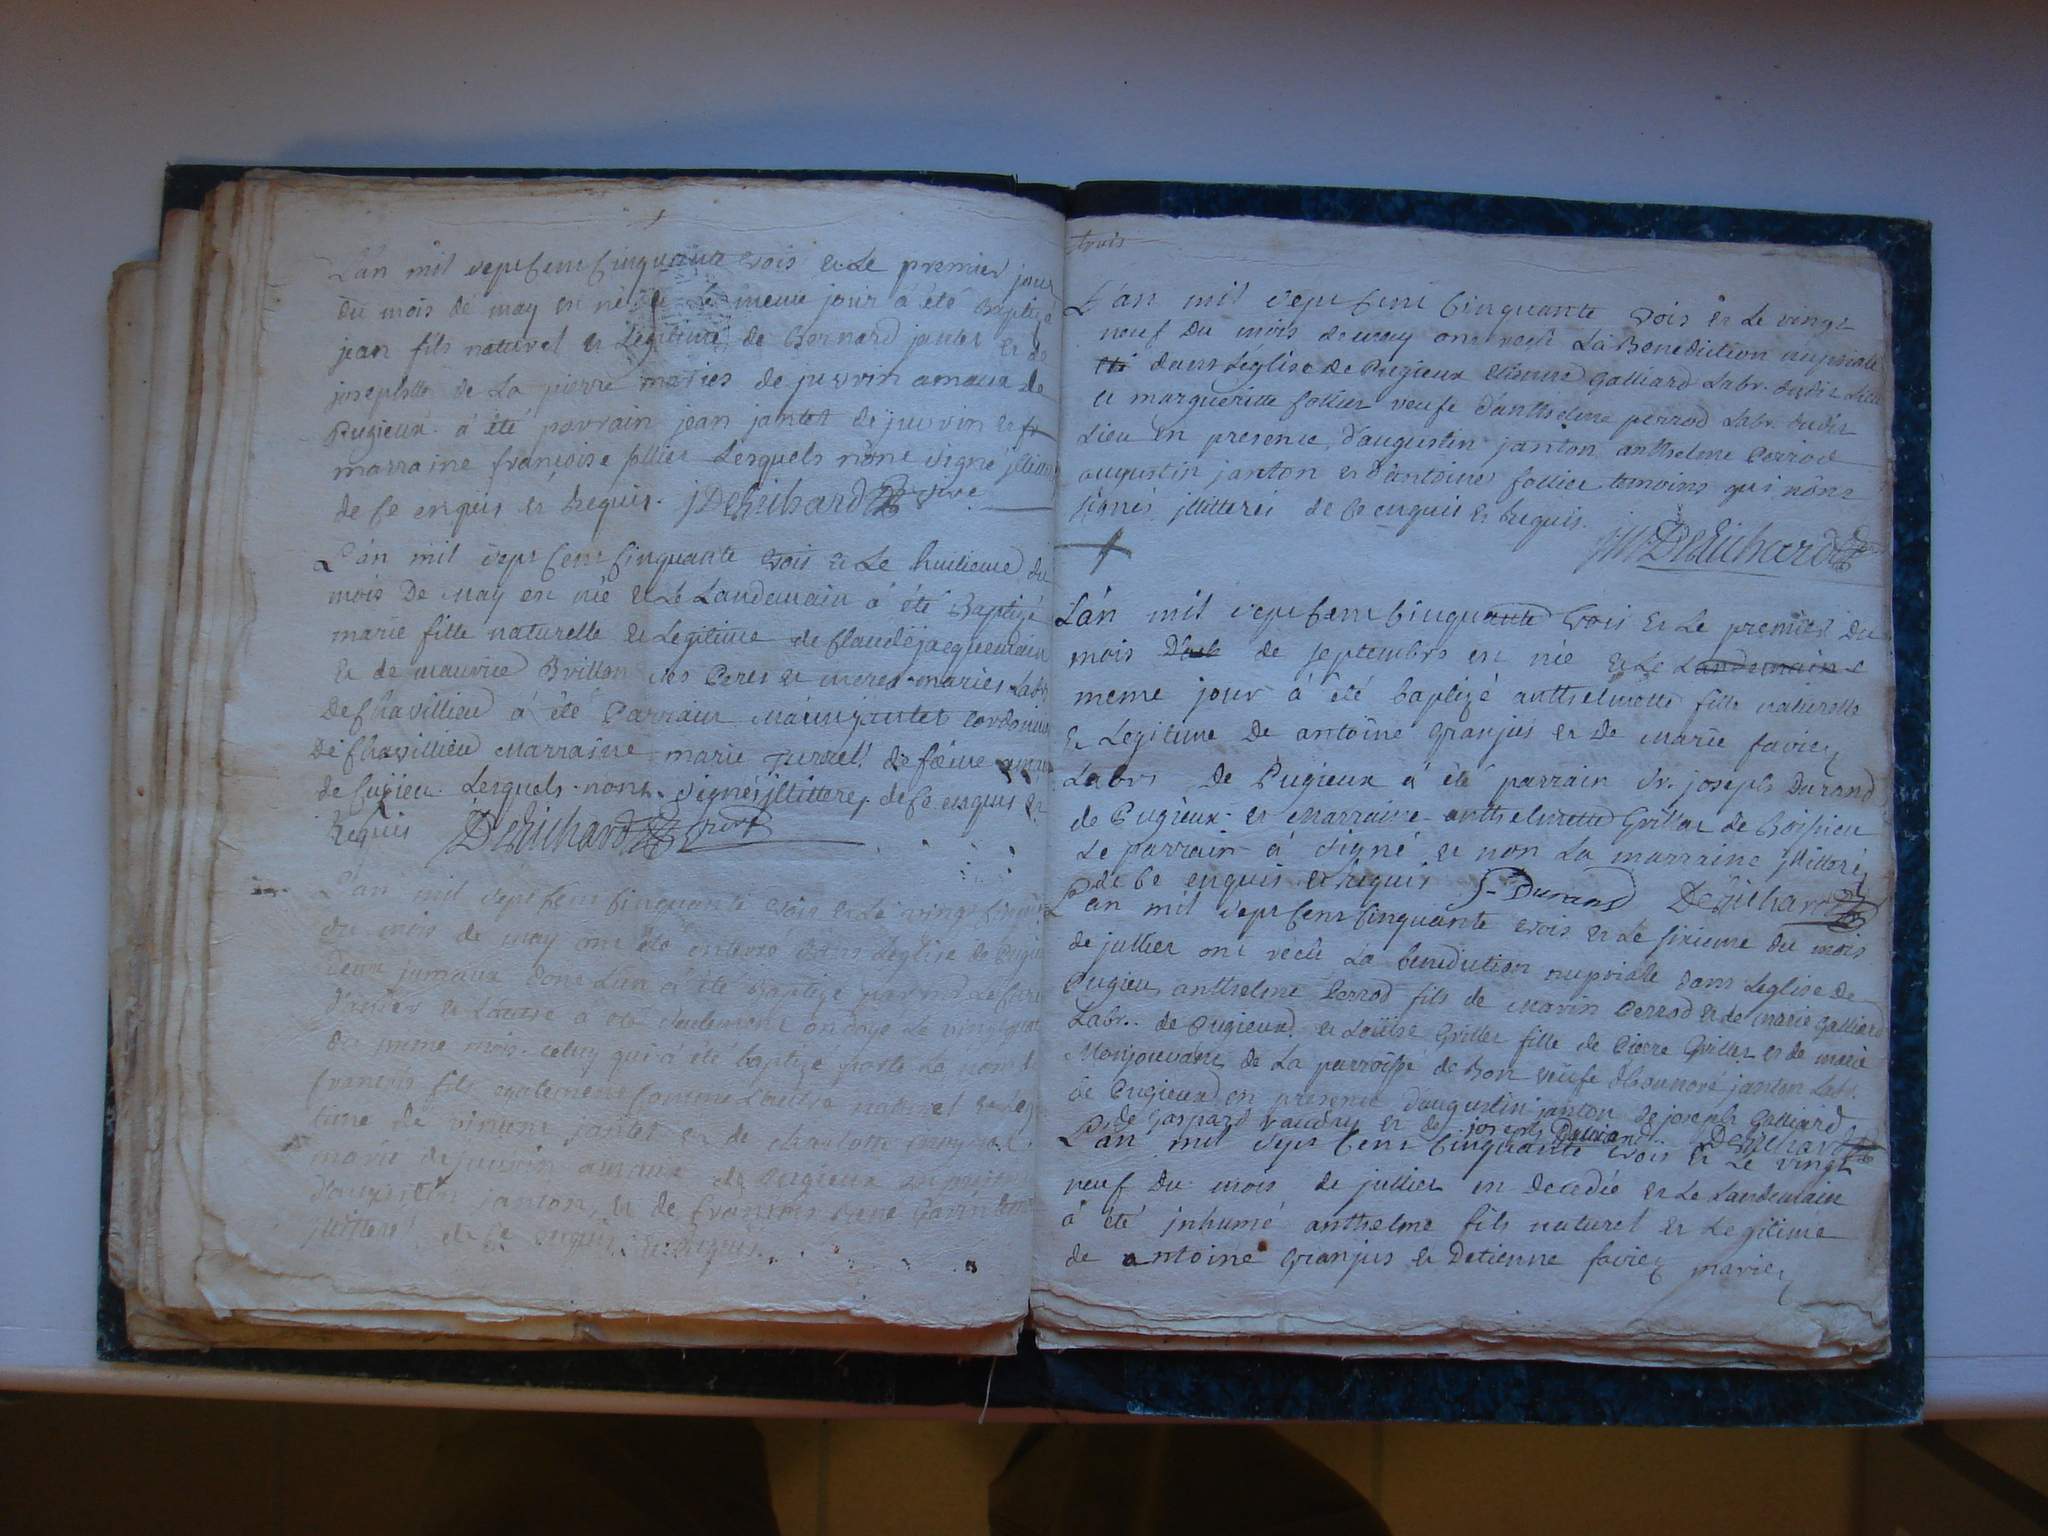 L'an mil sept cent cinquante trois et le premier jour
du mois de may est né et le meme jour a été Baptizé
jean fils naturel et Legitime de Bernard jantet et de
josephte de La pierre mariés de juvrin amaux de
Pugieux a été parrain jean jantet de juvrin et
marraine francoise follier Lesquels n'ont signé jllitteres
de ce enquis et Requis. Derichard
L'an mil sept cent cinquante trois et Le huitieme du
mois De may est née et Le Landemain a été Baptizé
marie fille naturelle et Legitime de Claude jacquemain
et de maurice Brillon ses Peres et meres mariés Labr
De Chavillieu a été Parrain jantet cordonnier
De Chavillieu Marraine marie de
de Cuzieu Lesquels n'ont signés jllitteres de ce enquis et
Requis Derichard
L'an mil sept cent cinquante trois et Le vingt
du mois de may ont été enterré dans L'eglise de Pugieu
Deux jumaux dont L'un a été Baptizé par
et L'autre a été seulement ondoyé Le vingt
du meme mois. celuy qui a été baptizé porte Le nom de
francois fils egalement comme L'autre naturel et Legi
time de vincent jantet et de charlotte
mariés de juvrin amaux de Pugieux en presence
d'augustin janton, et de francois
jllitteres de ce enquis et Requis.
trois
L'an mil sept cent cinquante trois et Le vingt
neuf du mois de may ont reçu La Benediction nuptiale
dans L'église de Pugieux etienne Galliard Labr. dudit Lieu
et marguerite follier veufe d'anthelme perrod Labr. dudit
Lieu en presence d'augustin janton anthelme Perrod
augustin janton et d'antoine follier temoins qui n'ont
signés jllitteres de ce enquis et Requis.
Derichard
L'an mil sept cent cinquante trois et Le premier du
mois de septembre est née et Le Landemain
meme jour a été baptizé anthelmette fille naturelle
et Legitime De antoine Granjus et De Marie faviez
Labrs De Pugieux a été parrain Sr. joseph Durand
de Pugieux et Marraine anthelmette Grillat de Boissieu
Le parrain a signé et non La marraine jllitteré
de ce enquis et Requis J Durand Derichard
L'an mil sept cent cinquante trois et Le sixieme du mois
de juillet ont recu La benediction nuptiale dans L'eglise de
Pugieu anthelme Perrod fils de Marin Perrod et de Marie Galliard
Labr. de Pugieux et Loüise Griller fille de Pierre Griller et de marie
Monjouvent de La parroisse de Bon veufe d'honnoré janton Labr.
de Pugieux en presence d'augustin janton de joseph Galliard
de Gaspard vaudray et de joseph Durand Derichard
L'an mil sept cent cinquante trois et Le vingt
neuf Du mois de juillet est Decedé et Le Landemain
a été jnhumé anthelme fils naturel et Legitime
de antoine Granjus et Detienne faviez mariez